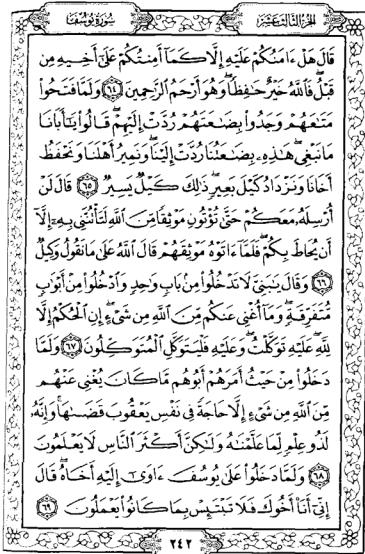 سُورَةُ يُوسُفَ الجُزْءُ الثَّالِثَ عَشَرَ
قَالَ هَلْ ءَامَنُكُمْ عَلَيْهِ إِلَّا كَمَآ أَمِنتُكُمْ عَلَىٰٓ أَخِيهِ مِن
قَبْلُ فَٱللَّهُ خَيْرٌ حَٰفِظًا وَهُوَ أَرْحَمُ ٱلرَّٰحِمِينَ ٦٤ وَلَمَّا فَتَحُوا۟
مَتَٰعَهُمْ وَجَدُوا۟ بِضَٰعَتَهُمْ رُدَّتْ إِلَيْهِمْ قَالُوا۟ يَٰٓأَبَانَا
مَا نَبْغِى هَٰذِهِۦ بِضَٰعَتُنَا رُدَّتْ إِلَيْنَا وَنَمِيرُ أَهْلَنَا وَنَحْفَظُ
أَخَانَا وَنَزْدَادُ كَيْلَ بَعِيرٍ ذَٰلِكَ كَيْلٌ يَسِيرٌ ٦٥ قَالَ لَنْ
أُرْسِلَهُۥ مَعَكُمْ حَتَّىٰ تُؤْتُونِ مَوْثِقًا مِّنَ ٱللَّهِ لَتَأْتُنَّنِى بِهِۦٓ إِلَّآ
أَن يُحَاطَ بِكُمْ فَلَمَّآ ءَاتَوْهُ مَوْثِقَهُمْ قَالَ ٱللَّهُ عَلَىٰ مَا نَقُولُ وَكِيلٌ
٦٦ وَقَالَ يَٰبَنِىَّ لَا تَدْخُلُوا۟ مِنۢ بَابٍ وَٰحِدٍ وَٱدْخُلُوا۟ مِنْ أَبْوَٰبٍ
مُّتَفَرِّقَةٍ وَمَآ أُغْنِى عَنكُم مِّنَ ٱللَّهِ مِن شَىْءٍ إِنِ ٱلْحُكْمُ إِلَّا
لِلَّهِ عَلَيْهِ تَوَكَّلْتُ وَعَلَيْهِ فَلْيَتَوَكَّلِ ٱلْمُتَوَكِّلُونَ ٦٧ وَلَمَّا
دَخَلُوا۟ مِنْ حَيْثُ أَمَرَهُمْ أَبُوهُم مَّا كَانَ يُغْنِى عَنْهُم
مِّنَ ٱللَّهِ مِن شَىْءٍ إِلَّا حَاجَةً فِى نَفْسِ يَعْقُوبَ قَضَىٰهَا وَإِنَّهُۥ
لَذُو عِلْمٍ لِّمَا عَلَّمْنَٰهُ وَلَٰكِنَّ أَكْثَرَ ٱلنَّاسِ لَا يَعْلَمُونَ
٦٨ وَلَمَّا دَخَلُوا۟ عَلَىٰ يُوسُفَ ءَاوَىٰٓ إِلَيْهِ أَخَاهُ قَالَ
إِنِّىٓ أَنَا۠ أَخُوكَ فَلَا تَبْتَئِسْ بِمَا كَانُوا۟ يَعْمَلُونَ ٦٩
٢٤٢